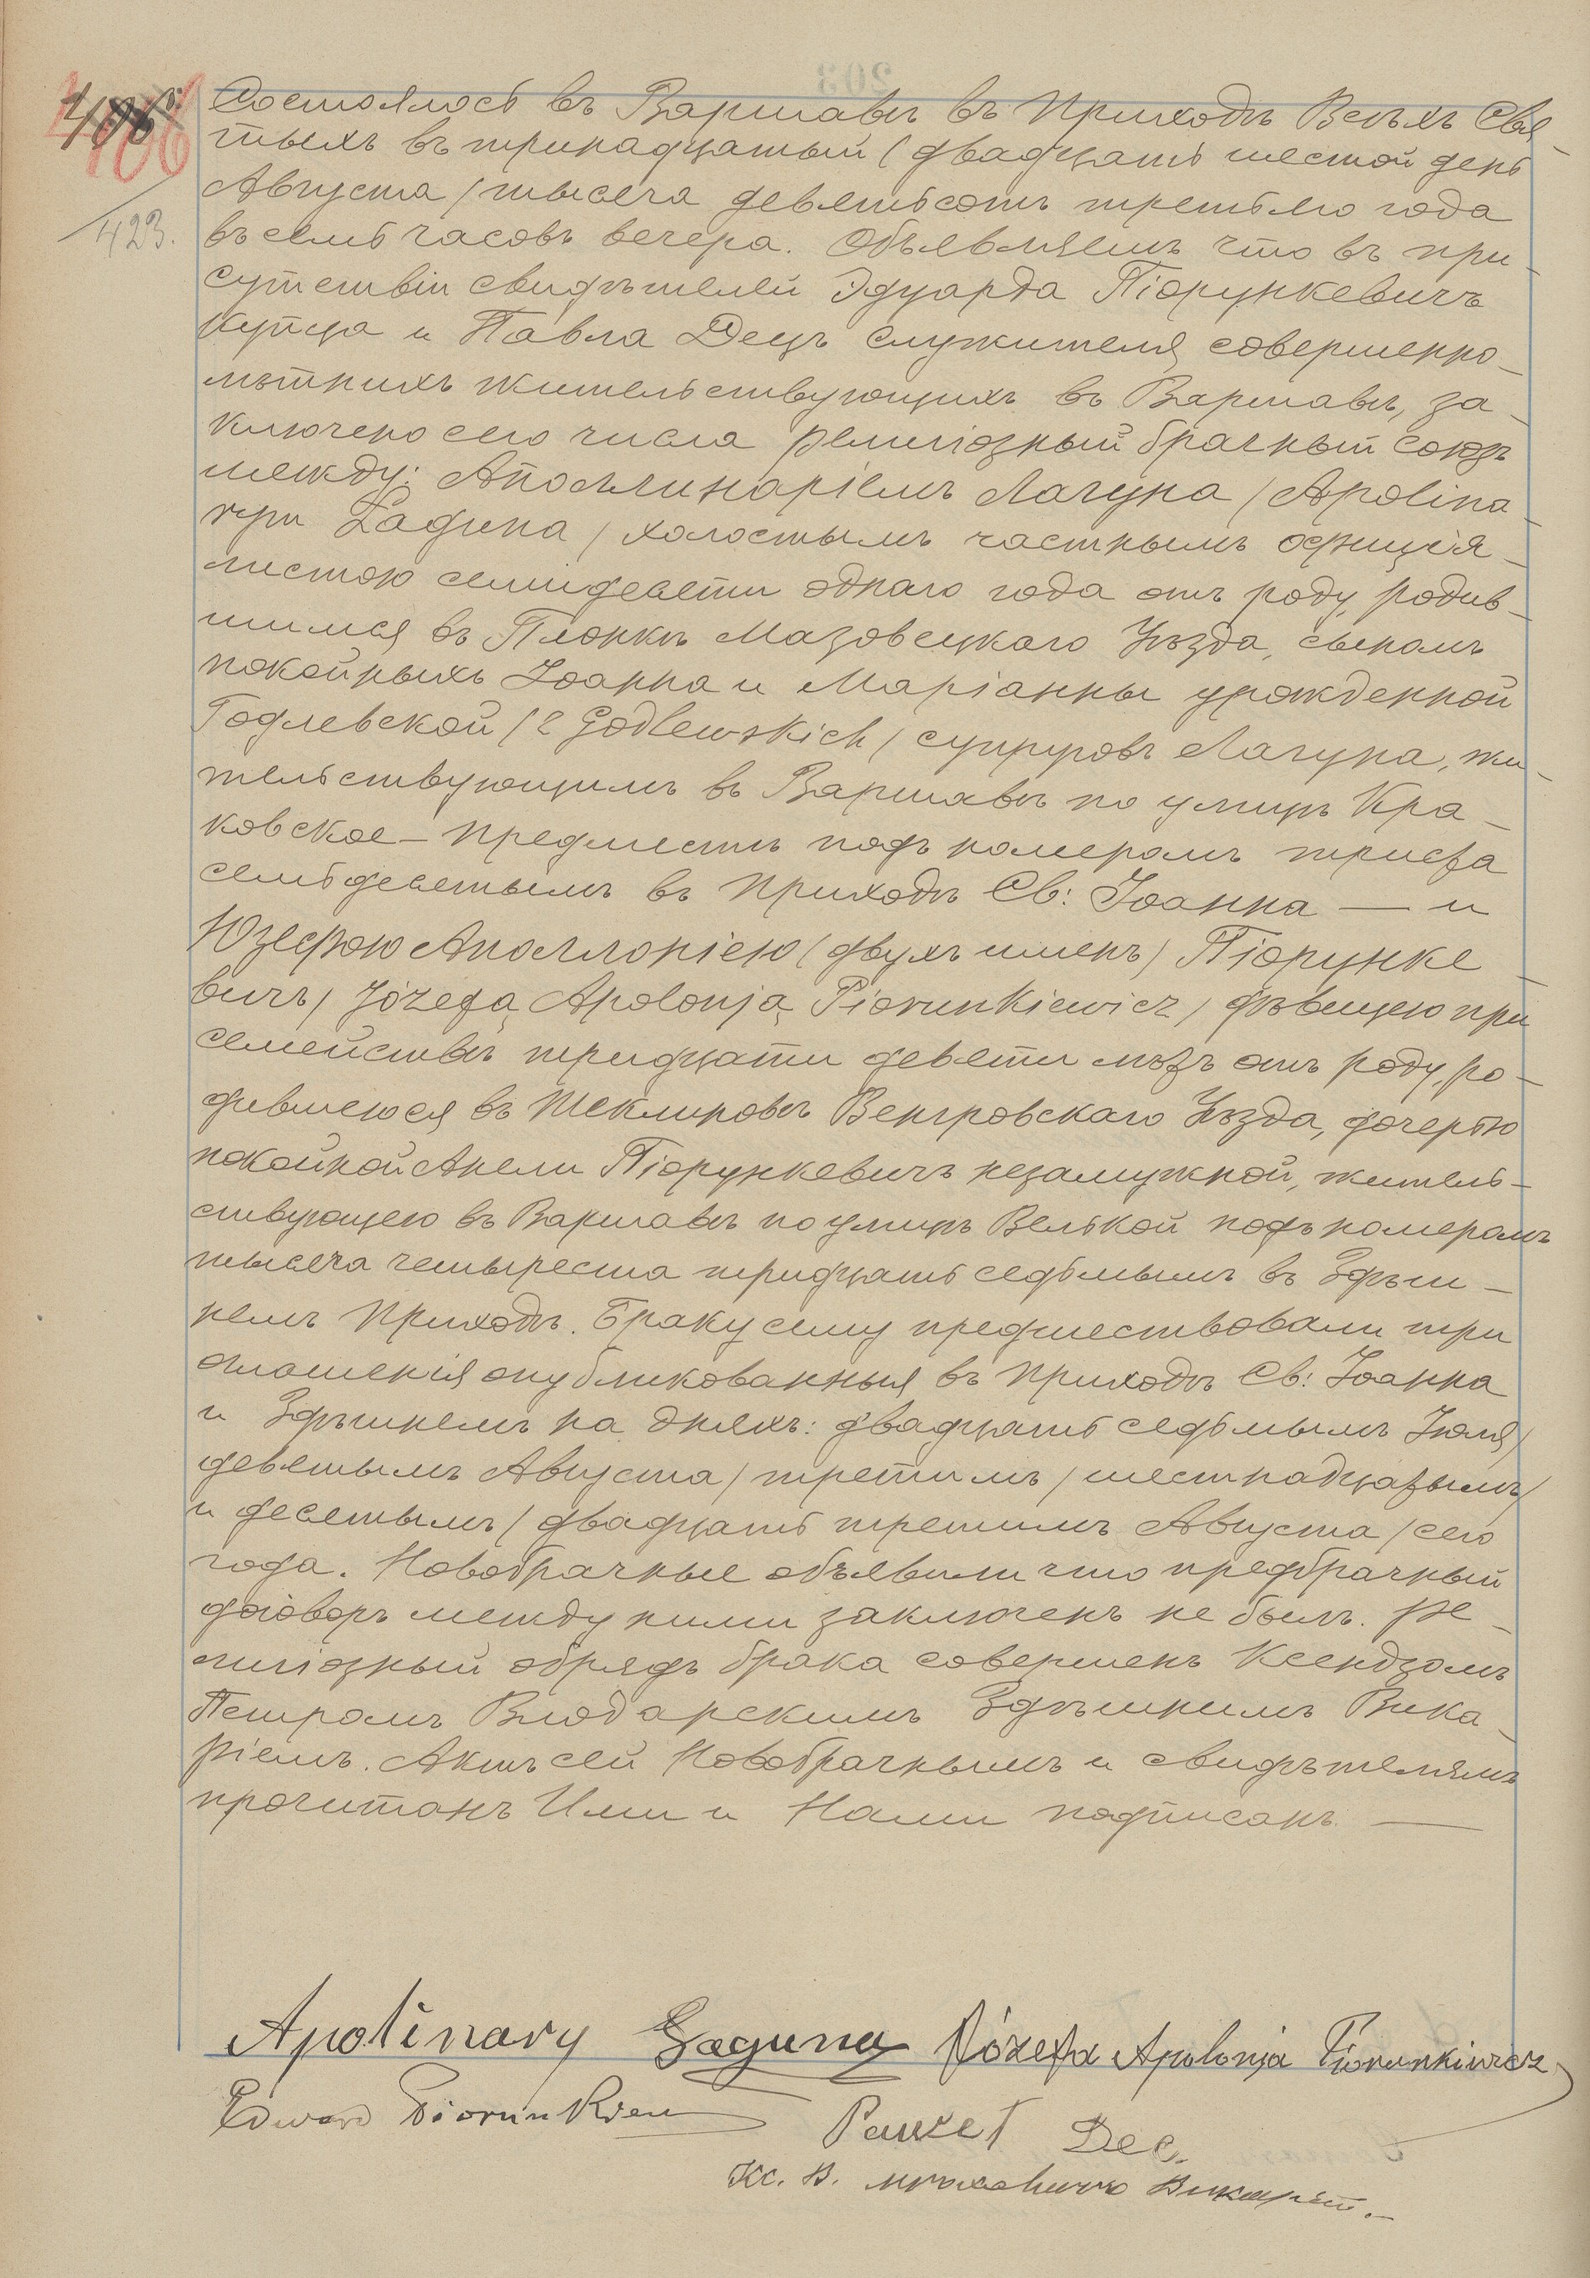 203
406
423.
Состоялось въ Варшавѣ въ Приходѣ Всѣхъ Свя-
тыхъ въ тринадцатый (двадцать шестой день
Августа) тысяча девятьсотъ третьяго года
въ семь часовъ вечера. Объявляемъ что въ при-
сутствіи свидѣтелей Эдуарда Піорункевичъ
купца и Павла Децъ служителя, совершенно-
лѣтнихъ жительствующихъ въ Варшавѣ, за-
ключено сего числа религіозный брачный союзъ
между: Аполлинаріемъ Лагуна /Apolina-
ry Łaguna/ холостымъ частнымъ оффиція-
листою семидесяти однаго года отъ роду, родив-
шимся въ Плонкѣ Мазовецкаго Уѣзда, сыномъ
покойныхъ Іоанна и Маріанны урожденной
Годлевской /z Godlewskich/ супруговъ Лагуна, жи-
тельствующимъ въ Варшавѣ по улицѣ Кра-
ковское-Предмѣстѣ подъ номеромъ триста
семьдесятымъ въ Приходѣ Св: Іоанна — и
Юзефою Аполлоніею (двухъ именъ) Піорунке-
вичъ /Józefą Apolonją Piorunkiewicz/ дѣвицею при
семействѣ тридцати девяти лѣтъ отъ роду, ро-
дившеюся въ Шеклиновѣ Венгровскаго Уѣзда, дочерью
покойной Анели Піорункевичъ незамужной, житель-
ствующею въ Варшавѣ по улицѣ Велькой подъ номеромъ
тысяча четыреста тридцать седьмымъ въ Здѣш-
немъ Приходѣ. Браку сему предшествовали три
оглашенія опубликованныя въ Приходѣ Св: Іоанна
и Здѣшнемъ на дняхъ: двадцать седьмымъ Іюля/
девятымъ Августа/ третимъ /шестнадцатымъ/
и десятымъ /двадцать третимъ Августа/ сего
года. Новобрачные объявили что предбрачный
договоръ между ними заключенъ не былъ. Ре-
лигіозный обрядъ брака совершенъ Ксендзомъ
Петромъ Влодарскимъ Здѣшнимъ Вика-
ріемъ. Актъ сей Новобрачнымъ и свидѣтелямъ
прочитанъ Ими и Нами подписанъ —
Apolinary Łaguna Józefa Apolonja Piorunkiewicz
Edward Piorunkiew
Paweł Dec.
Кс. В. Викарій.